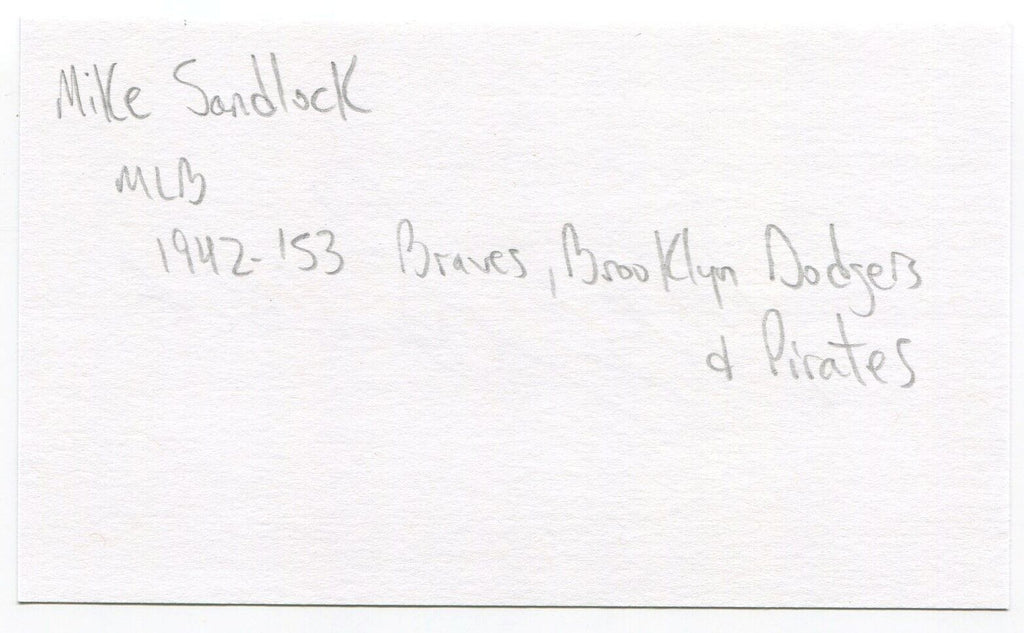 Mike Sandlock
MLB
1942-'53 Braves, Brooklyn Dodgers
& Pirates